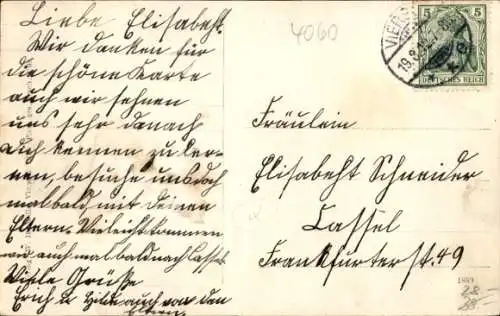 Liebe Elisabeht.
Wir danken für
die schöne Karte
auch wir sehnen
uns sehr danach
dich kennen zu ler-
nen, besuche uns doch
mal bald mit deinen
Eltern. Vieleicht kommen
wir auch mal bald nach Cassel
Viele Grüße
Erich u Hilde auch von den
Eltern.
4060
5 5
DEUTSCHES REICH
VIER
19.8.
Fräulein
Elisabeht Schneider
Cassel
Frankfurter st. 49
1889
28.-